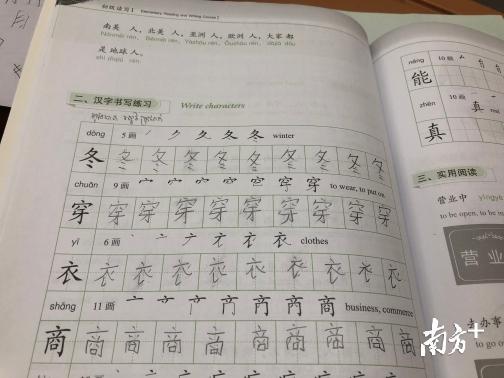 初级读写 I Elementary Reading and Writing Course I
南美 人，北美 人，亚洲 人，欧洲 人，大家 都
Nánměi rén, Běiměi rén, Yàzhōu rén, Ōuzhōu rén, dàjiā dōu
是 地球 人。
shì dìqiú rén.
二、汉字书写练习 Write characters
dōng 5 画 冬 winter
冬 冬 冬 冬 冬 冬 冬 冬 冬
chuān 9 画 穿 to wear, to put on
穿 穿 穿 穿 穿 穿 穿 穿 穿
yī 6 画 衣 clothes
衣 衣 衣 衣 衣 衣 衣 衣 衣
shāng 11 画 商 business, commerce
商 商 商 商 商 商 商 商 商
néng 10 画
能
zhēn 10 画
真 real
三、实用阅读
营业中 yíngyè
to be open, to be in
营业
去办事
to go o
南方+